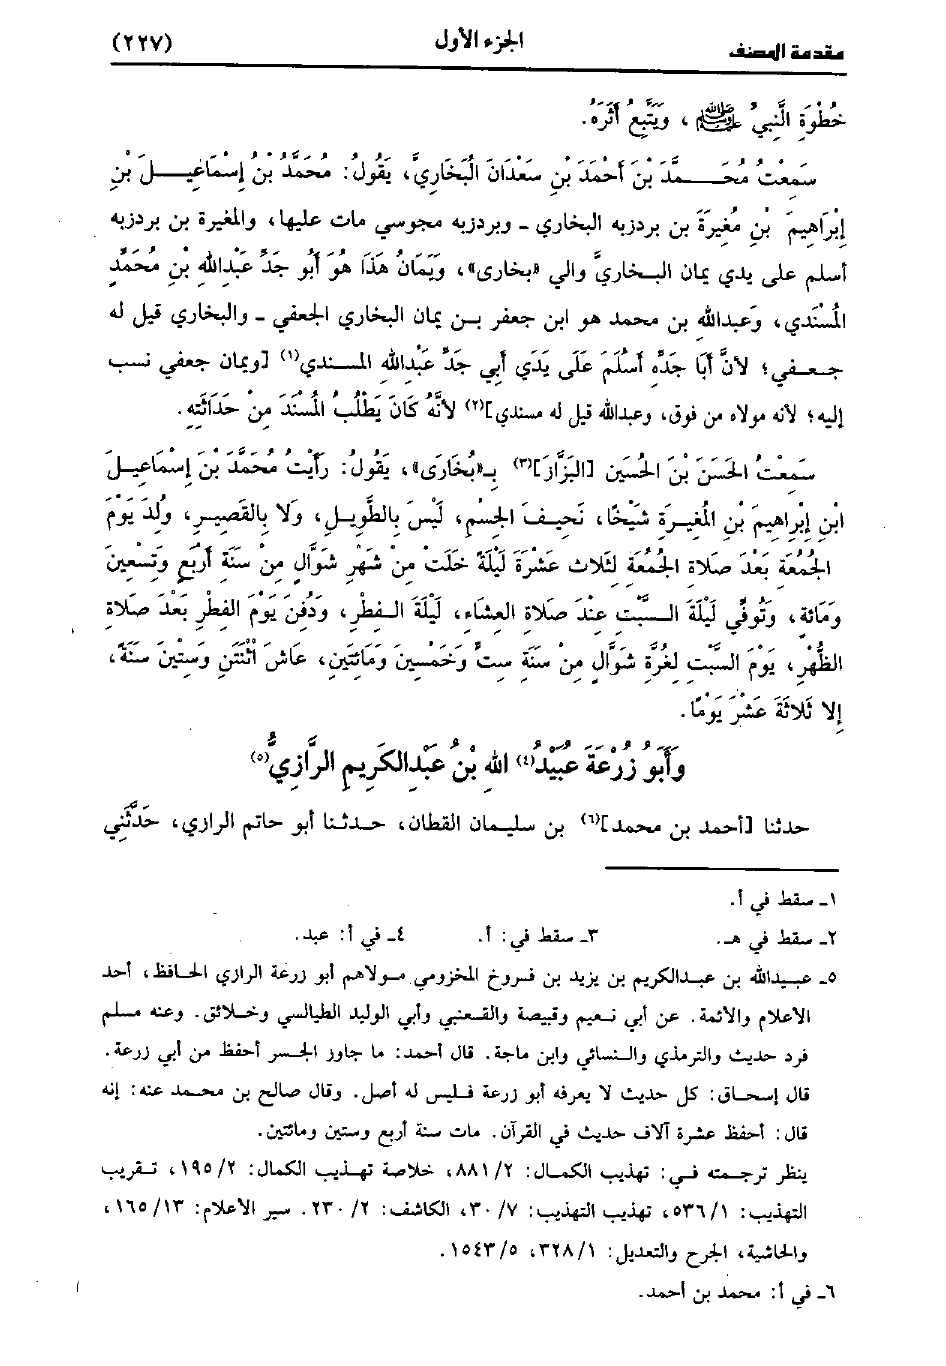 مقدمة المصنف الجزء الأول (٢٢٧)
خُطْوَةِ النَّبِيُ ﷺ، وَيَتَّبِعُ أَثَرَهُ.
سَمِعْتُ مُحَمَّدَ بْنَ أَحْمَدَ بْنِ سَعْدَانَ الْبُخَارِيَّ، يَقُولُ: مُحَمَّدُ بْنُ إِسْمَاعِيلَ بْنِ
إِبْرَاهِيمَ بْنِ مُغِيرَةَ بن بردزبه البخاري ـ وبردزبه مجوسي مات عليها، والمغيرة بن بردزبه
أسلم على يدي يمان البخاريَّ والي «بخارى»، وَيَمَانُ هَذَا هُوَ أَبُو جَدِّ عَبْدِاللهِ بْنِ مُحَمَّدٍ
المُسْنَدِي، وَعبدالله بن محمد هو ابن جعفر بن يمان البخاري الجعفي ـ والبخاري قيل له
جعفي؛ لأنَّ أبَا جَدِّهِ أَسْلَمَ عَلَى يَدَي أَبِي جَدِّ عَبْدِاللهِ المسندي(١) [ويمان جعفي نسب
إليه؛ لأنه مولاه من فوق، وعبدالله قيل له مسندي](٢) لأَنَّهُ كَانَ يَطْلُبُ المُسْنَدَ مِنْ حَدَاثَتِهِ.
سَمِعْتُ الحَسَنَ بْنَ الحُسَيْنِ [البَزَّازَ](٣) بِـ«بُخَارَى»، يَقُولُ: رَأَيْتُ مُحَمَّدَ بْنَ إِسْمَاعِيلَ
ابْنِ إِبْرَاهِيمَ بْنِ المُغِيرَةِ شَيْخًا، نَحِيفَ الجِسْمِ، لَيْسَ بِالطَّوِيلِ، وَلَا بِالقَصِيرِ، وُلِدَ يَوْمَ
الجُمُعَةِ بَعْدَ صَلَاةِ الجُمُعَةِ لِثَلَاثَ عَشْرَةَ لَيْلَةً خَلَتْ مِنْ شَهْرِ شَوَّالٍ مِنْ سَنَةِ أَرْبَعٍ وَتِسْعِينَ
وَمَائَةِ، وَتُوفِّي لَيْلَةَ السَّبْتِ عِنْدَ صَلَاةِ العِشَاءِ، لَيْلَةَ الفِطْرِ، وَدُفِنَ يَوْمَ الفِطْرِ بَعْدَ صَلَاةِ
الظُّهْرِ، يَوْمَ السَّبْتِ لِغُرَّةِ شَوَّالٍ مِنْ سَنَةِ سِتٍّ وَخَمْسِينَ وَمَائَتَيْنِ، عَاشَ اثْنَتَيْنِ وَسِتِّينَ سَنَةً،
إِلا ثَلاثَةَ عَشَرَ يَوْمًا.
وَأَبُو زُرْعَةَ عُبَيْدُ(٤) اللهِ بْنُ عَبْدِالكَرِيمِ الرَّازِيُّ(٥)
حدثنا [أحمد بن محمد](٦) بن سليمان القطان، حدثنا أبو حاتم الرازي، حَدَّثَنِي
١ـ سقط في أ.
٢ـ سقط في هـ. ٣ـ سقط في: أ. ٤ـ في أ: عبد.
٥ـ عبيدالله بن عبدالكريم بن يزيد بن فروخ المخزومي مولاهم أبو زرعة الرازي الحافظ، أحد
الأعلام والأئمة. عن أبي نعيم وقبيصة والقعنبي وأبي الوليد الطيالسي وخلائق. وعنه مسلم
فرد حديث والترمذي والنسائي وابن ماجة. قال أحمد: ما جاوز الجسر أحفظ من أبي زرعة.
قال إسحاق: كل حديث لا يعرفه أبو زرعة فليس له أصل. وقال صالح بن محمد عنه: إنه
قال: أحفظ عشرة آلاف حديث في القرآن. مات سنة أربع وستين ومائتين.
ينظر ترجمته في: تهذيب الكمال: ٨٨١/٢، خلاصة تهذيب الكمال: ١٩٥/٢، تقريب
التهذيب: ٥٣٦/١، تهذيب التهذيب: ٣٠/٧، الكاشف: ٢٣٠/٢. سير الأعلام: ١٦٥/١٣،
والحاشية، الجرح والتعديل: ٣٢٨/١، ١٥٤٣/٥.
٦ـ في أ: محمد بن أحمد.